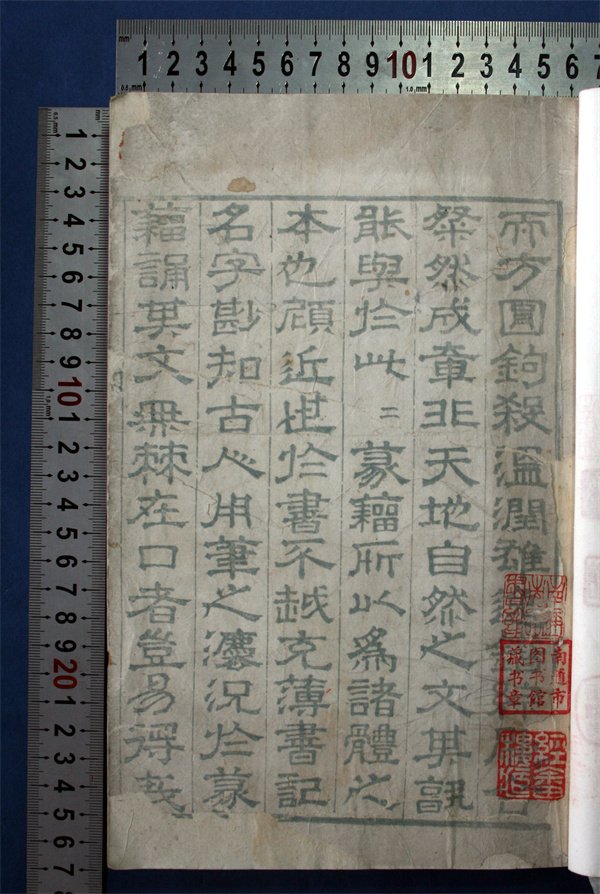 而方圓鉤殺溫潤雅
粲然成章非天地自然之文其孰
能與於此二篆籀所以爲諸體之
本也顧近世於書不越充薄書記
名字尠知古人用筆之灋況於篆
籀誦其文無棘在口者豈易得哉
南通市
图书馆
藏书章
mm 1 2 3 4 5 6 7 8 9 10 1 2 3 4 5 6 7
0.5 mm 1.0 mm
1 2 3 4 5 6 7 8 9 10 1 2 3 4 5 6 7 8 9 20 1 2 3 4 5 6 7